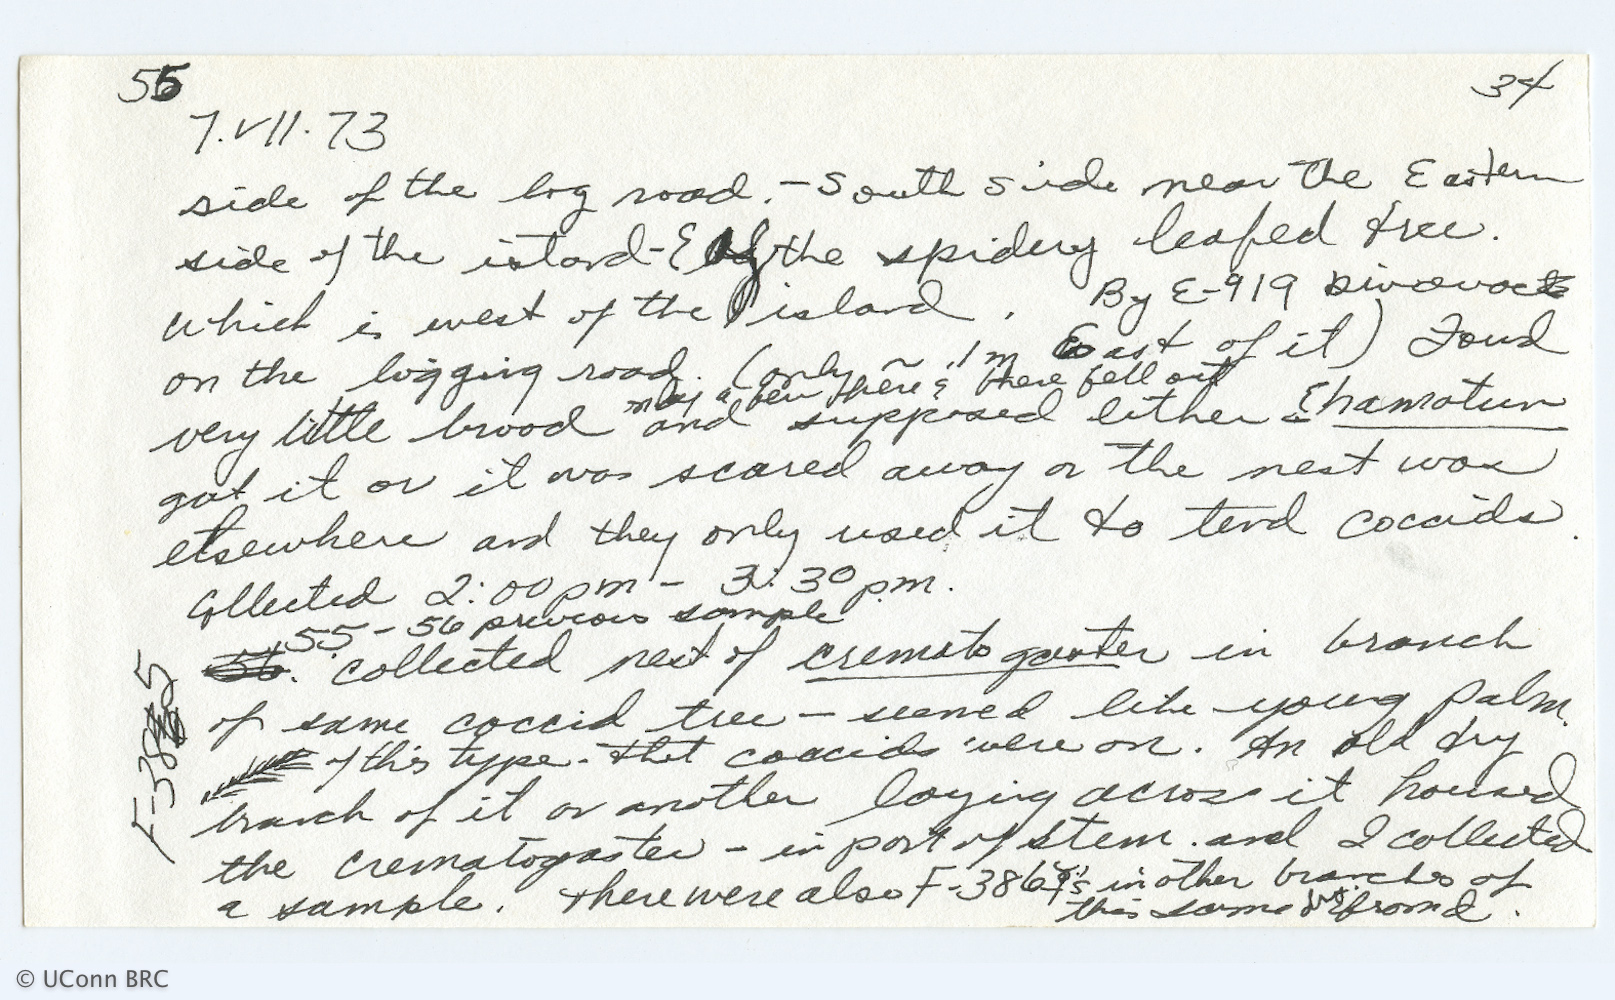 55 34
7.VII.73
side of the log road. - South side near the Eastern
side of the island - E of the spidery leafed tree.
which is west of the island. By E-919 bivouac
on the logging road. (only ~ .1m East of it) Found
may a few here & there fell out
very little brood and supposed either E hamatum
got it or it was scared away or the nest was
elsewhere and they only used it to tend coccids.
Collected 2:00 pm - 3:30 p.m.
55-56 previous sample
56. collected nest of crematogaster in branch
of same coccid tree - seemed like young palm.
of this type. that coccids were on. An old dry
branch of it or another laying across it housed
the crematogaster - in part of stem. and I collected
a sample. there were also F-386 in other branches of
this same dry frond.
F-385
© UConn BRC